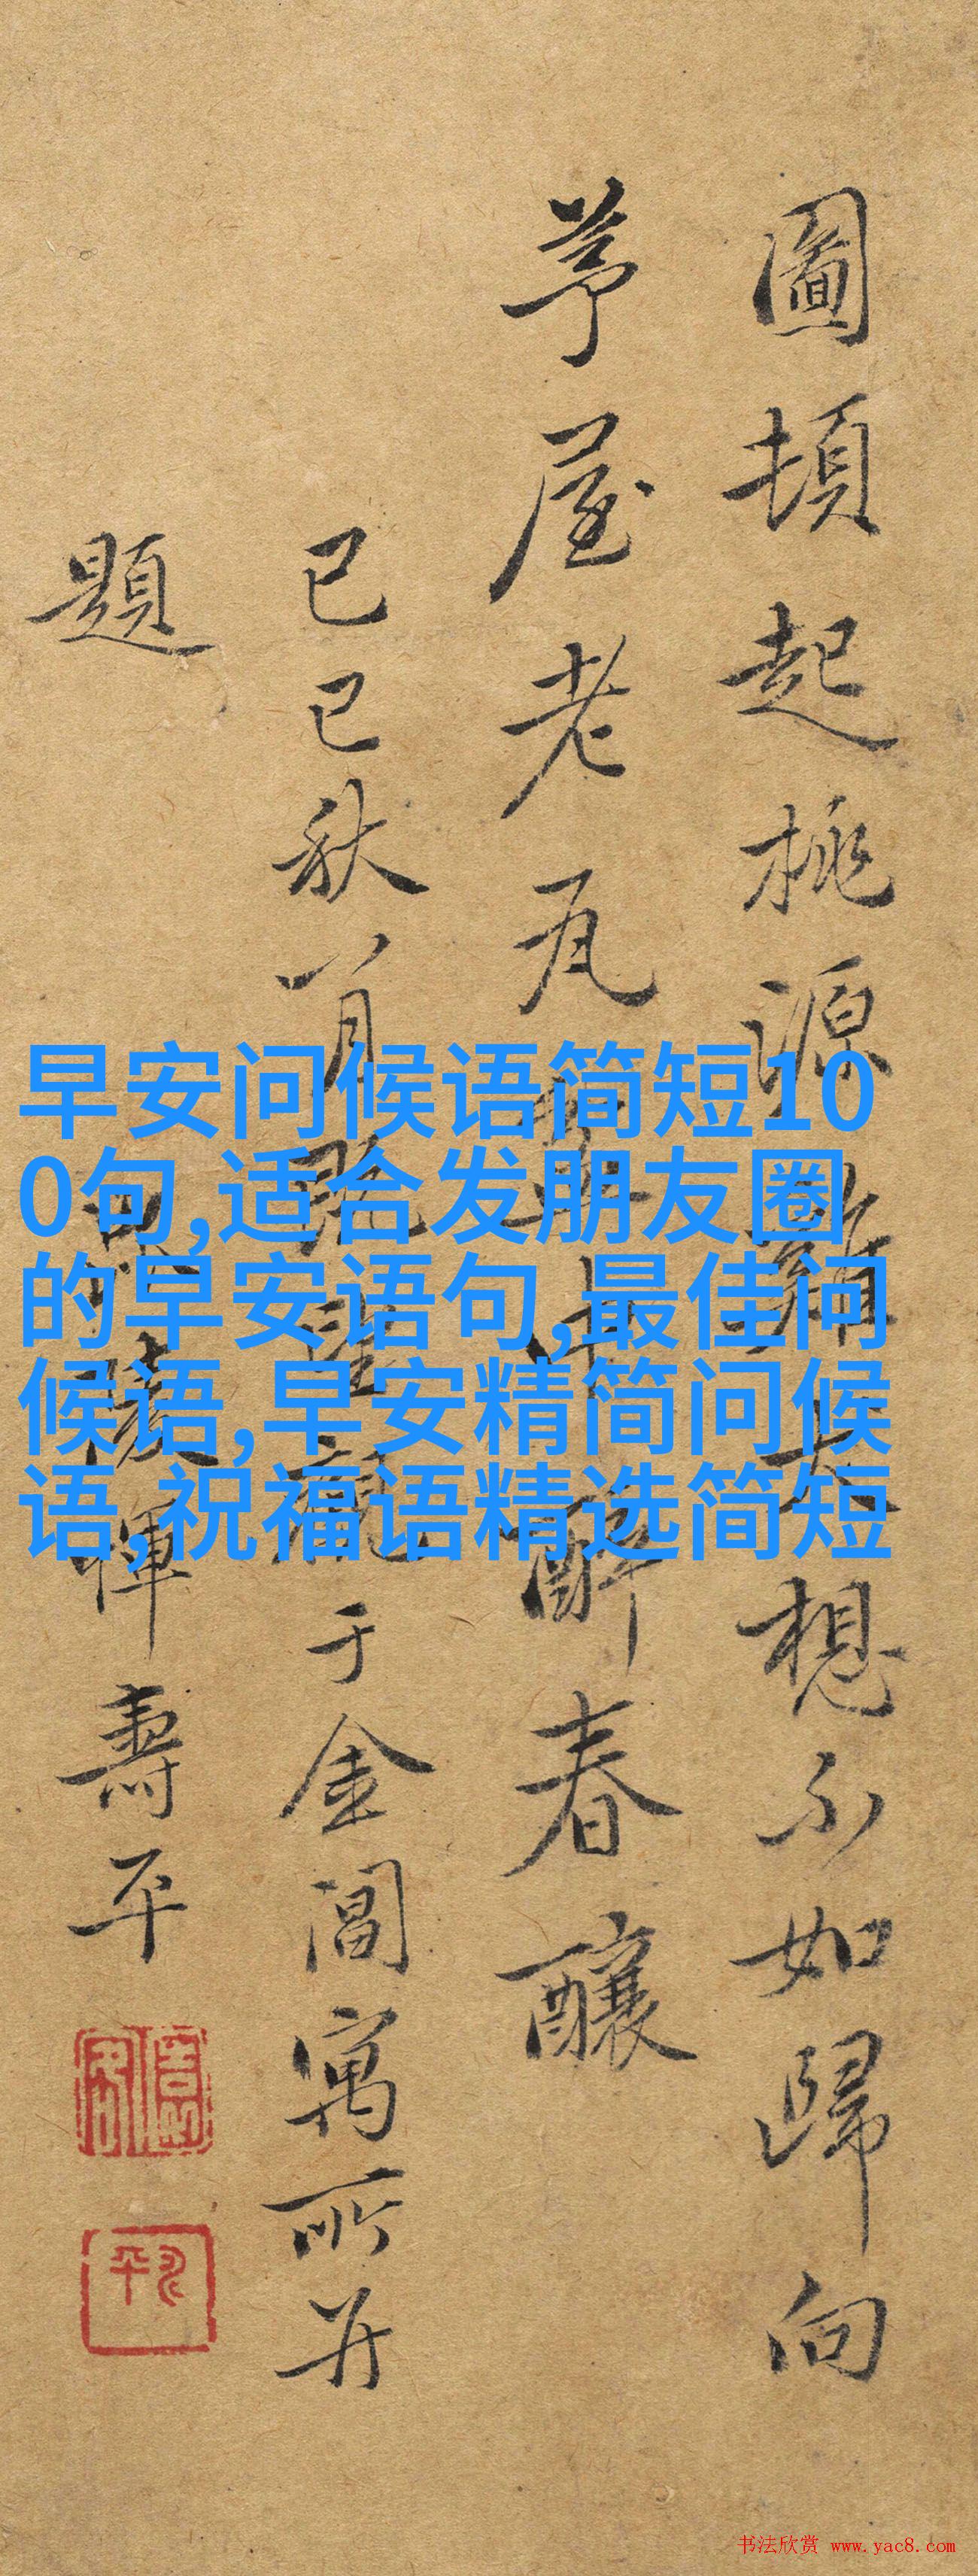 圖頓起桃源雞犬想不如歸向
茅屋老瓦盆中醉春釀
己巳秋八月既望觀于金閶寓所并
題
陵惲壽平
早安问候语简短10
0句,适合发朋友圈
的早安语句,最佳问
候语,早安精简问候
语,祝福语精选简短
书法欣赏 www.yac8.com